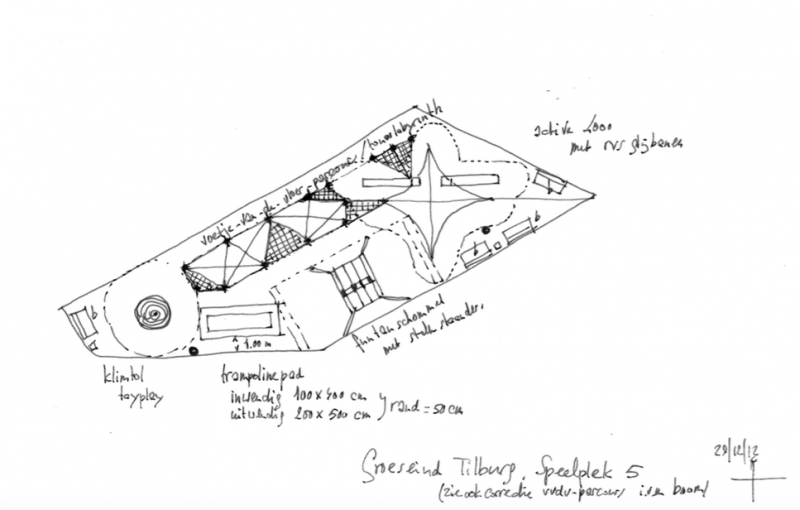 voetje-van-de-vloer-parcours/touwlabyrinth
active 2000
met rvs glijbanen
b
b
b
b
1.00 m
funtanschommel
met stalen staander.
klimtol
tayplay
trampolinepad
inwendig 100x400 cm
uitwendig 200x500 cm
rand = 50 cm
Groeseind Tilburg. Speelplek 5
(zie ook correctie vvdv-parcours i.v.m boom)
29/12/12